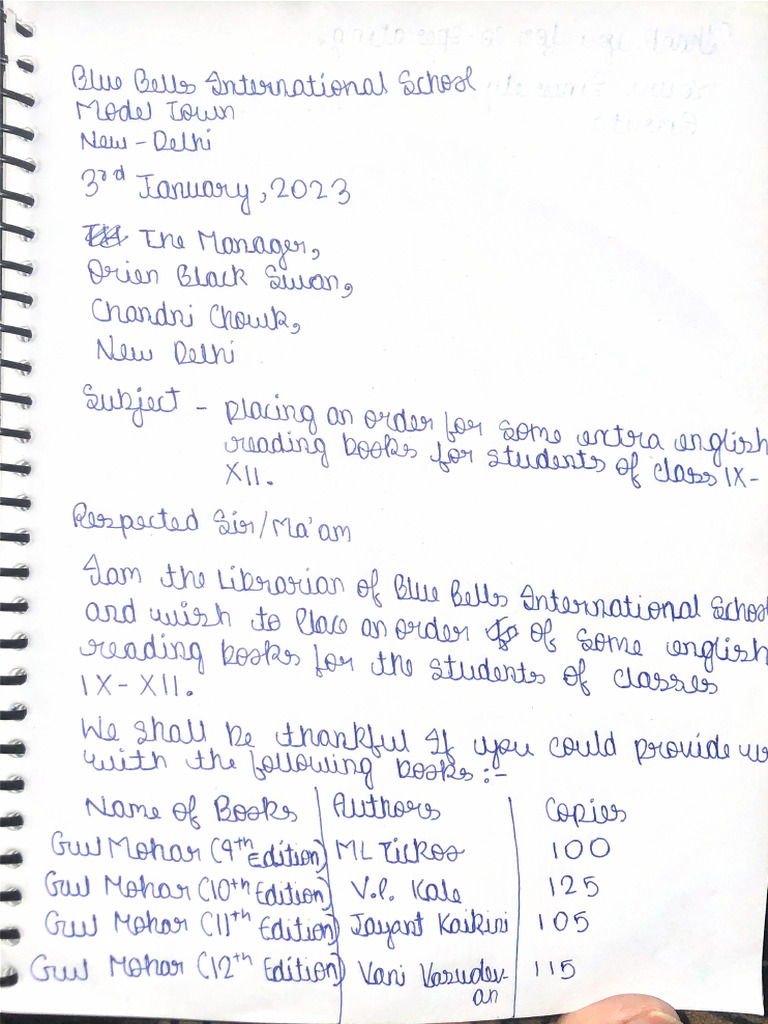 Blue Bells International School
Model Town
New - Delhi
3rd January, 2023
The Manager,
Orien Black Swan,
Chandni Chowk,
New Delhi
Subject - placing an order for some extra english
reading books for students of class IX-
XII.
Respected Sir/Ma'am
I am the Librarian of Blue Bells International School
and wish to place an order of some english
reading books for the students of classes
IX-XII.
We shall be thankful If you could provide us
with the following books :-
Name of Books | Authors | Copies
Gul Mohar (9th Edition) | ML Tickoo | 100
Gul Mohar (10th Edition) | V.P. Kale | 125
Gul Mohar (11th Edition) | Jayant Kaikini | 105
Gul Mohar (12th Edition) | Vani Vasudev- | 115
an